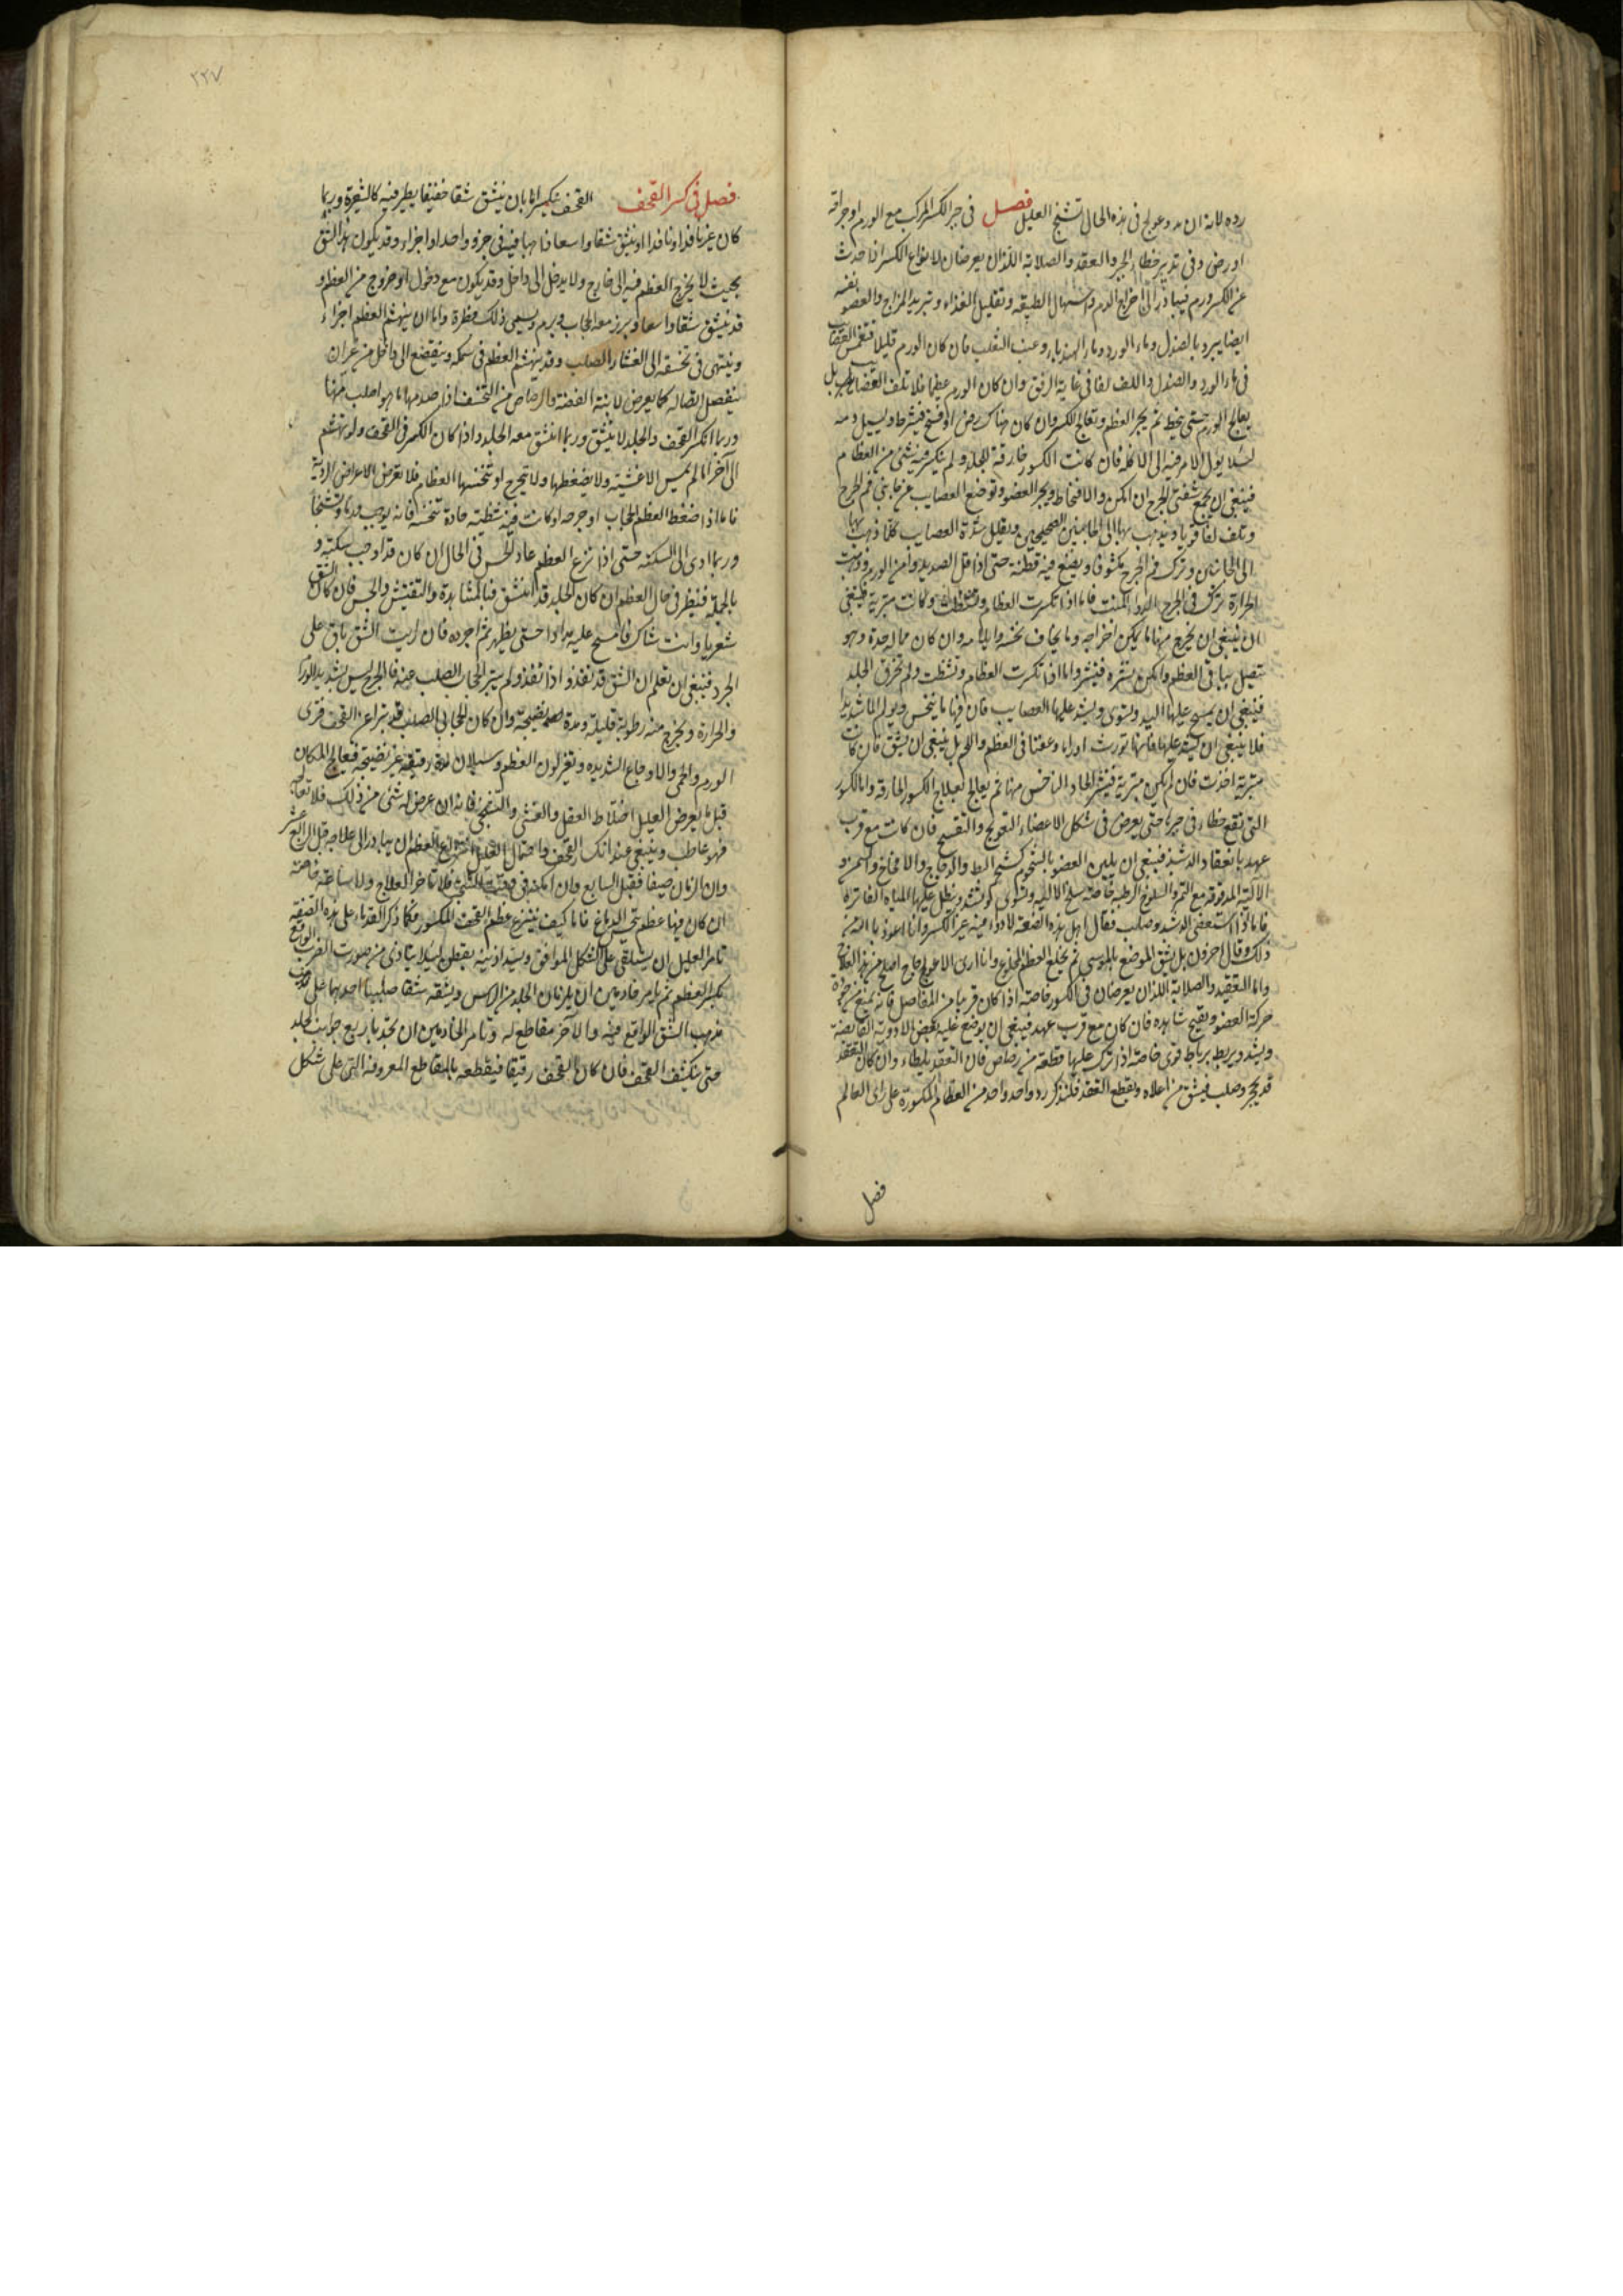 رده لانه ان مد وعولج فى هذه الحال تشنج العليل فصل فى جبر الكسر المركب مع الورم او جراحة
او رض وفى تدبير خطاء الجبر والعقد والصلابة اللذان يعرضان لانواع الكسر اذا حدث
عن الكسر ورم فيبادر الى اخراج الدم واسهال الطبيعة وتقليل الغذاء وتبريد المزاج والعضو نفسه
ايضا يبرد بالصندل وماء الورد وماء الهندباء وعنب الثعلب فان كان الورم قليلا فتغمس العصايب
فى ماء الورد والصندل واللف لفا فى غاية الرفق وان كان الورم عظيما فلا تلف العصايب بل
يعالج الورم حتى ينحط ثم يجبر العظم ويعالج الكسر وان كان هناك رض او فسخ فيشرط ويسيل دمه
لئلا يؤل الامر فيه الى الاكلة فان كانت الكسور خارقة للجلد ولم ينكسر فيه شئ من العظام
فينبغى ان يجمع شفتى الجرح ان امكن والا فتخاط ويجبر العضو وتوضع العصايب عن جانبى فم الجرح
وتلف لفا قويا ويذهب بها الى الجانبين الصحيحين ويقلل شدة العصايب كلما ذهب بها
الى الجانبين وترك فم الجرح مكشوفا ويضع فيه قطنة حتى اذا قل الصديد وامن الورم وذهبت
الحرارة ترك فى الجرح الدواء المنبت فاما اذا تكسرت العظام وتشظت وكانت متبرية فينبغى
ان ينبغى ان يخرج منها ما يمكن اخراجه وما يخاف نخسه وايلامه وان كان مما له حدة وهو
متصل بباقى العظم وامكن نشره فينشر واما اذا تكسرت العظام وتشظت ولم تخرق الجلد
فينبغى ان يمسح عليها اليد وتسوى ويشد عليها العصايب فان فيها ما ينخس ويولم الما شديدا
فلا ينبغى ان يشد عليها فانها تورث اوراما وعفنا فى العظم واللحم بل ينبغى ان يشق فان كانت
متبرية اخذت فان لم يكن متبرية فينشر الحاد الناخس منها ثم يعالج بعلاج الكسور الخارقة واما الكسور
التى تقع خطاء فى جبرها حتى يعرض فى شكل الاعضاء التعويج والتقبيح فان كانت مع قرب
عهد بانعقاد الدشبذ فينبغى ان يلين العضو بالشحوم كشحم البط والدجاج والامخاخ والسمن و
الالية المدقوقة مع التمر والسلوخ الرطبة خاصة سلخ الالية وتسوى كوفتشد وينطل عليها المياه الفاترة
فاما اذا استعصى الدشبذ وصلب فقال اهل هذه الصنعة لا دواء فيه غير الكسر وانا اعوذ بالله من
ذلك وقال اخرون بل يشق الموضع بالموسى ثم يخلع العظم المجذوع وانا ارى الاعوجاج اصلح من هذا العلاج
واما التعقيد والصلابة اللذان يعرضان فى الكسور خاصة اذا كان قريبا من المفاصل فانه يمنع من جودة
حركة العضو ويقبح شاهده فان كان مع قرب عهد فينبغى ان يوضع عليه بعض الادوية القابضة
ويشد ويربط برباط قوى خاصة اذا ترك عليها قطعة من رصاص فان التعقد يلطاء وان كان التعقد
قد تحجر وصلب فيشق من اعلاه ويقطع التعقد فلنذكر رد واحد واحد من العظام المكسورة على راى العالم
فصل
٢٢٧
فصل فى كسر القحف القحف ينكسر اما بان ينشق شقا خفيفا يظهر فيه كالشعرة وربما
كان غير نافذ او نافذا او ينشق شقا واسعا ذاهبا فيه فى جزو واحد او اجزاء وقد يكون هذا الشق
بحيث لا يخرج العظم فيه الى خارج ولا يدخل الى داخل وقد يكون مع دخول او خروج من العظم و
قد ينشق شقا واسعا ويبرز معه الحجاب ويرم ويسمى ذلك فطرة واما ان ينهشم العظم اجزاء
وينتهى فى تخسفه الى الغشاء الصلب وقد ينهشم العظم فى سمكه وينقضع الى داخل من غير ان
ينفصل اتصاله كما يعرض لانية الفضة والرصاص من التخسف اذا صدمها ما هو اصلب منها
وربما انكسر القحف والجلد لا ينشق وربما انشق معه الجلد واذا كان الكسر فى القحف ولو تهشم
الى آخر ما لم يمس الاغشية ولا يضغطها ولا تجرح او تنخسها العظام فلا تعرض الاعراض الردية
فاما اذا ضغط العظم الحجاب او جرحه او كانت فيه شظية حادة تنخسه فانه يوجب ورما وتشنجا
وربما ادى الى السكتة حتى اذا نزع العظم عاد الحس فى الحال ان كان قد اوجب سكتة و
بالجملة فينظر فى حال العظم ان كان الجلد قد انشق فبالمشاهدة والتفتيش والجس فان كان الشق
شعريا وانت شاك فامسح عليه مدادا حتى يظهر ثم اجرده فان رايت الشق باق على
الجرد فينبغى ان تعلم ان الشق قد نفذ و اذا نفذ ولم يتبر الحجاب الصلب عنه فالجرح ليس بشديد الورم
والحرارة ويخرج منه رطوبة قليلة ومدة نضيجة وان كان الحجاب الصلب قد تبرا عن القحف فترى
الورم والحمى والاوجاع الشديدة وتغير لون العظم وسيلان مدة رقيقة غير نضيجة فيعالج المكان
قبل ما يعرض العليل اختلاط العقل والغشى والتشنج فانه ان عرض له شئ من ذلك فلا تعالجه
فهو عاطب وينبغى عند انكسار القحف واحتمال العليل لنزع العظم ان يبادر الى علاجه قبل الرابع عشر
وان الزمان صيفا فقبل السابع وان امكنه فى وقت الشتاء فلا تاخر العلاج ولا ساعة خاصة
ان كان فيها عظم ينخس الدماغ فاما كيف ينزع عظم القحف المكسور فكما ذكر القدماء على هذه الصفة
تامر العليل ان يستلقى على الشكل الموافق ويسد اذنيه بقطن لئلا يتاذى من صورت الضرب الواقع
بكسر العظم ثم يامر خادمين ان يلزمان الجلد من الراس ويشقه شقا صليبيا احدهما على
مذهب الشق الواقع فيه والآخر مقاطع له وتامر الخادمين ان يجذبا باربع جوانب الجلد
حتى ينكشف القحف فان كان القحف رقيقا فيقطعه بالمقاطع المعروفة التى على شكل